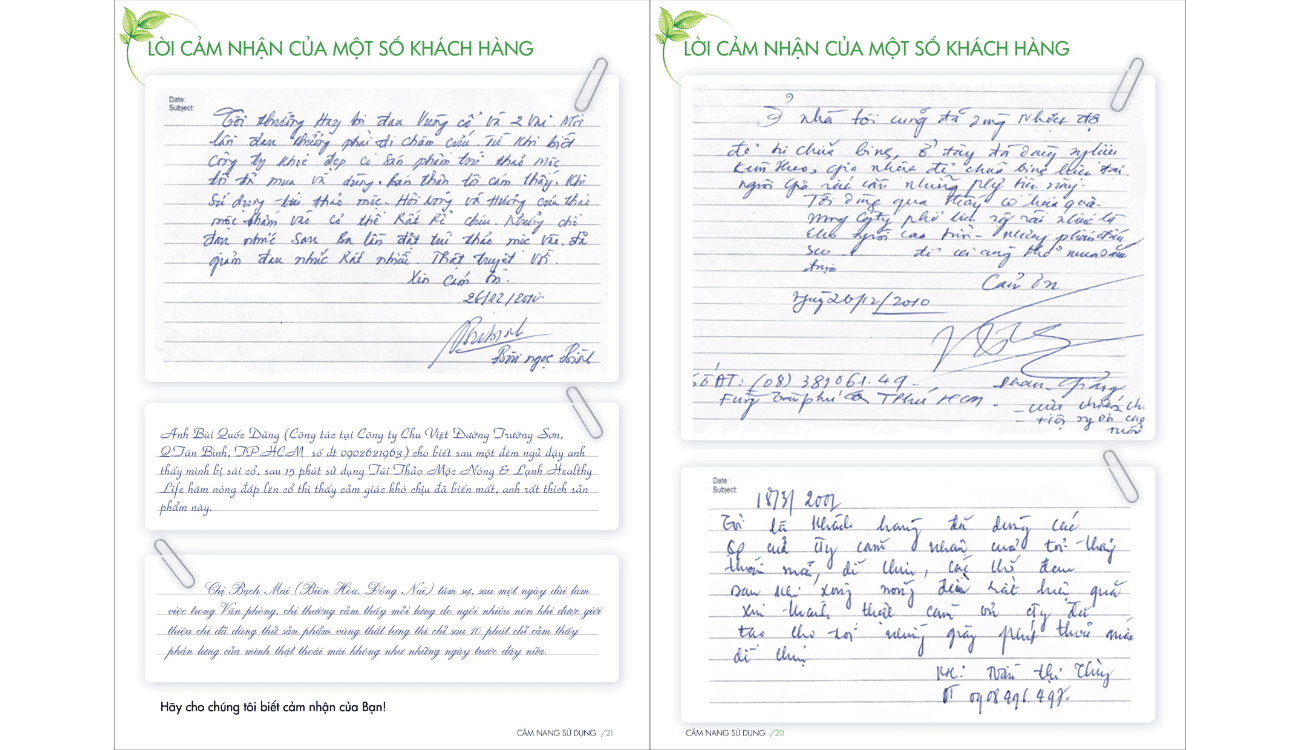 LỜI CẢM NHẬN CỦA MỘT SỐ KHÁCH HÀNG
Date:
Subject:
Tôi thường Hay bị đau Vướng cổ và 2 Vai Mỗi
lần đau thường phải đi châm cứu. Từ khi biết
Công ty Khoẻ đẹp có Sản phẩm túi thảo mộc
tôi đã mua về dùng. bản thân tôi cảm thấy. Khi
Sử dụng túi thảo mộc. Hơi nóng và Hương của thảo
mộc thấm vào cơ thể Rất dễ chịu. Những chỗ
đau nhức Sau ba lần đặt túi thảo mộc vào. đã
giảm đau nhức Rất nhiều. Thật tuyệt vời.
Xin Cám ơn.
26/12/2010.
Bùi ngọc Bình
Anh Bùi Quốc Dũng (Công tác tại Công ty Chu Việt Đường Trường Sơn,
Q.Tân Bình, TP.HCM số đt 0902621963) cho biết sau một đêm ngủ dậy anh
thấy mình bị sái cổ, sau 15 phút sử dụng Túi Thảo Mộc Nóng & Lạnh Healthy
Life hâm nóng đắp lên cổ thì thấy cảm giác khó chịu đã biến mất, anh rất thích sản
phẩm này.
Chị Bạch Mai (Biên Hòa, Đồng Nai) tâm sự, sau một ngày dài làm
việc trong Văn phòng, chị thường cảm thấy mỏi lưng do ngồi nhiều nên khi được giới
thiệu chị đã dùng thử sản phẩm vùng thắt lưng thì chỉ sau 10 phút chị cảm thấy
phần lưng của mình thật thoải mái không như những ngày trước đây nữa.
Hãy cho chúng tôi biết cảm nhận của Bạn!
CẨM NANG SỬ DỤNG /21
LỜI CẢM NHẬN CỦA MỘT SỐ KHÁCH HÀNG
Ở nhà tôi cũng đã dùng nhiều
để trị chữa bệnh, ở đây đã dùng
người già rất cần những này.
Tôi dùng qua thấy có hiệu quả.
mong Cty phổ biến rộng rãi nhất là
cho người cao tuổi
để ai cũng có thể mua
được
Cám ơn
Ngày 26/12/2010
Số ĐT: (08) 381061.49
Date:
Subject:
18/3/2007
Tôi là khách hàng đã dùng các
sp của Cty cảm nhận của tôi thấy
thoải mái, dễ chịu, các chỗ đau
sau khi xông nóng đều rất hiệu quả
xin thành thật cám ơn cty đã
tạo cho tôi những giây phút thoải mái
dễ chịu
KH: Trần thị Thùy
ĐT 0908.496.497.
CẨM NANG SỬ DỤNG /20